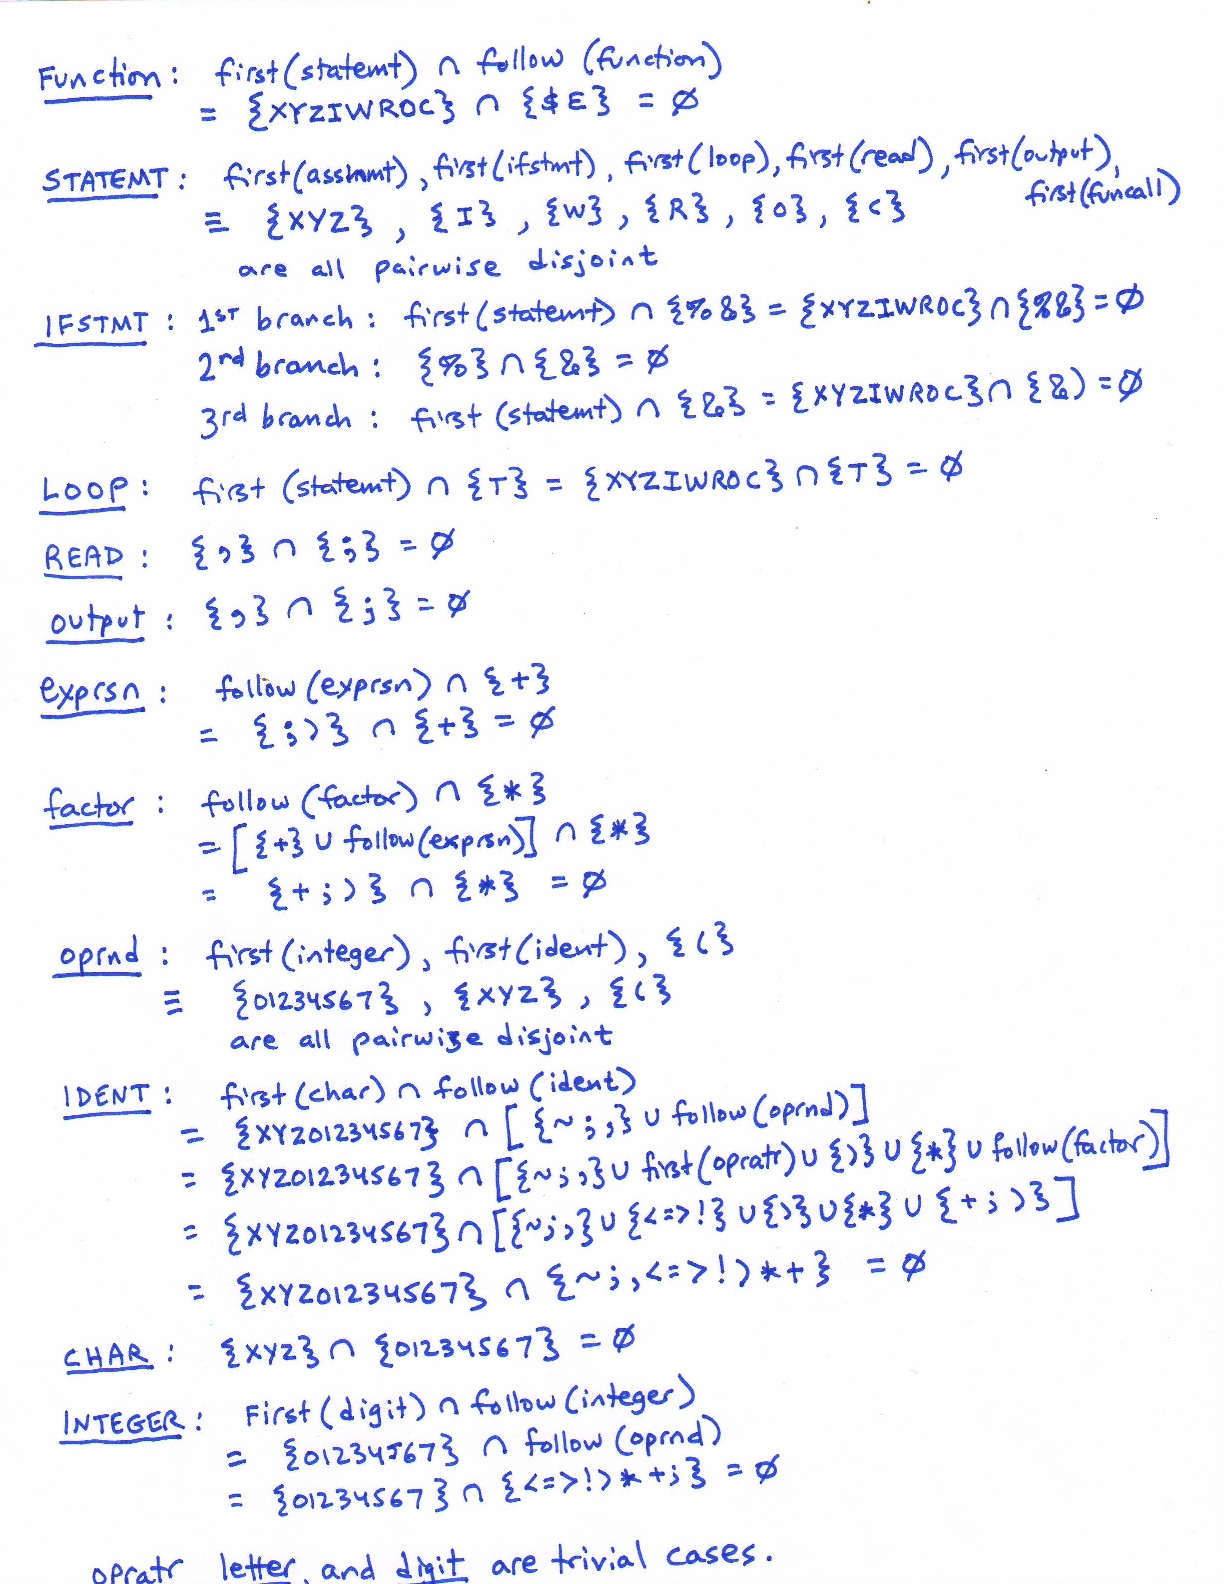 Function: first(statemt) ∩ follow (function)
= {XYZIWROC} ∩ {$ E} = ∅
STATEMT: first(assnmt), first(ifstmt), first(loop), first(read), first(output), first(funcall)
≡ {XYZ}, {I}, {W}, {R}, {O}, {C}
are all pairwise disjoint
IFSTMT: 1ST branch: first(statemt) ∩ {% &} = {XYZIWROC} ∩ {%&} = ∅
2nd branch: {%} ∩ {&} = ∅
3rd branch: first (statemt) ∩ {&} = {XYZIWROC} ∩ {&) = ∅
LOOP: first (statemt) ∩ {T} = {XYZIWROC} ∩ {T} = ∅
READ: {,} ∩ {;} = ∅
output: {,} ∩ {;} = ∅
exprsn: follow (exprsn) ∩ {+}
= {;)} ∩ {+} = ∅
factor: follow (factor) ∩ {*}
= [{+} ∪ follow(exprsn)] ∩ {*}
= {+;)} ∩ {*} = ∅
oprnd: first(integer), first(ident), {(}
≡ {01234567}, {XYZ}, {(}
are all pairwise disjoint
IDENT: first(char) ∩ follow (ident)
= {XYZ01234567} ∩ [{~;,} ∪ follow (oprnd)]
= {XYZ01234567} ∩ [{~;,} ∪ first(opratr) ∪ {)} ∪ {*} ∪ follow(factor)]
= {XYZ01234567} ∩ [{~;,} ∪ {<=>!} ∪ {)} ∪ {*} ∪ {+;)}]
= {XYZ01234567} ∩ {~;,<=>!)*+} = ∅
CHAR: {XYZ} ∩ {01234567} = ∅
INTEGER: First(digit) ∩ follow (integer)
= {01234567} ∩ follow (oprnd)
= {01234567} ∩ {<=>!)*+;} = ∅
opratr letter, and digit are trivial cases.